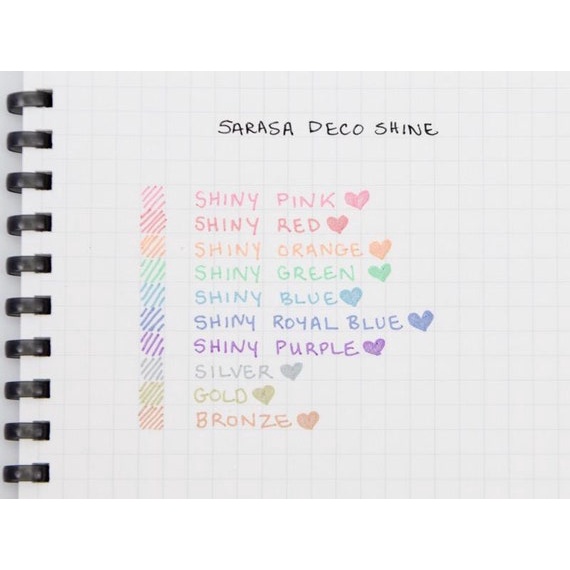 SARASA DECO SHINE
SHINY PINK
SHINY RED
SHINY ORANGE
SHINY GREEN
SHINY BLUE
SHINY ROYAL BLUE
SHINY PURPLE
SILVER
GOLD
BRONZE